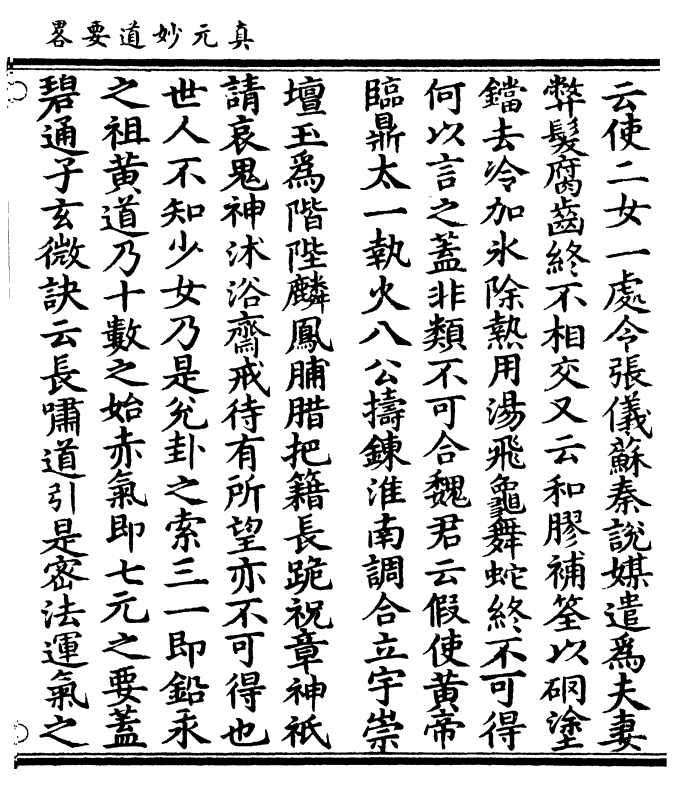 真元妙道要畧
云使二女一處令張儀蘇秦說媒遣爲夫妻
弊髮腐齒終不相交又云和膠補筌以硐塗
鐺去冷加氷除熱用湯飛龜舞蛇終不可得
何以言之蓋非類不可合魏君云假使黃帝
臨鼎太一執火八公擣鍊淮南調合立宇崇
壇玉爲階陛麟鳳脯腊把籍長跪祝章神祇
請哀鬼神沭浴齋戒待有所望亦不可得也
世人不知少女乃是兊卦之索三一即鉛汞
之祖黃道乃十數之始赤氣即七元之要蓋
碧通子玄微訣云長嘯道引是宻法運氣之